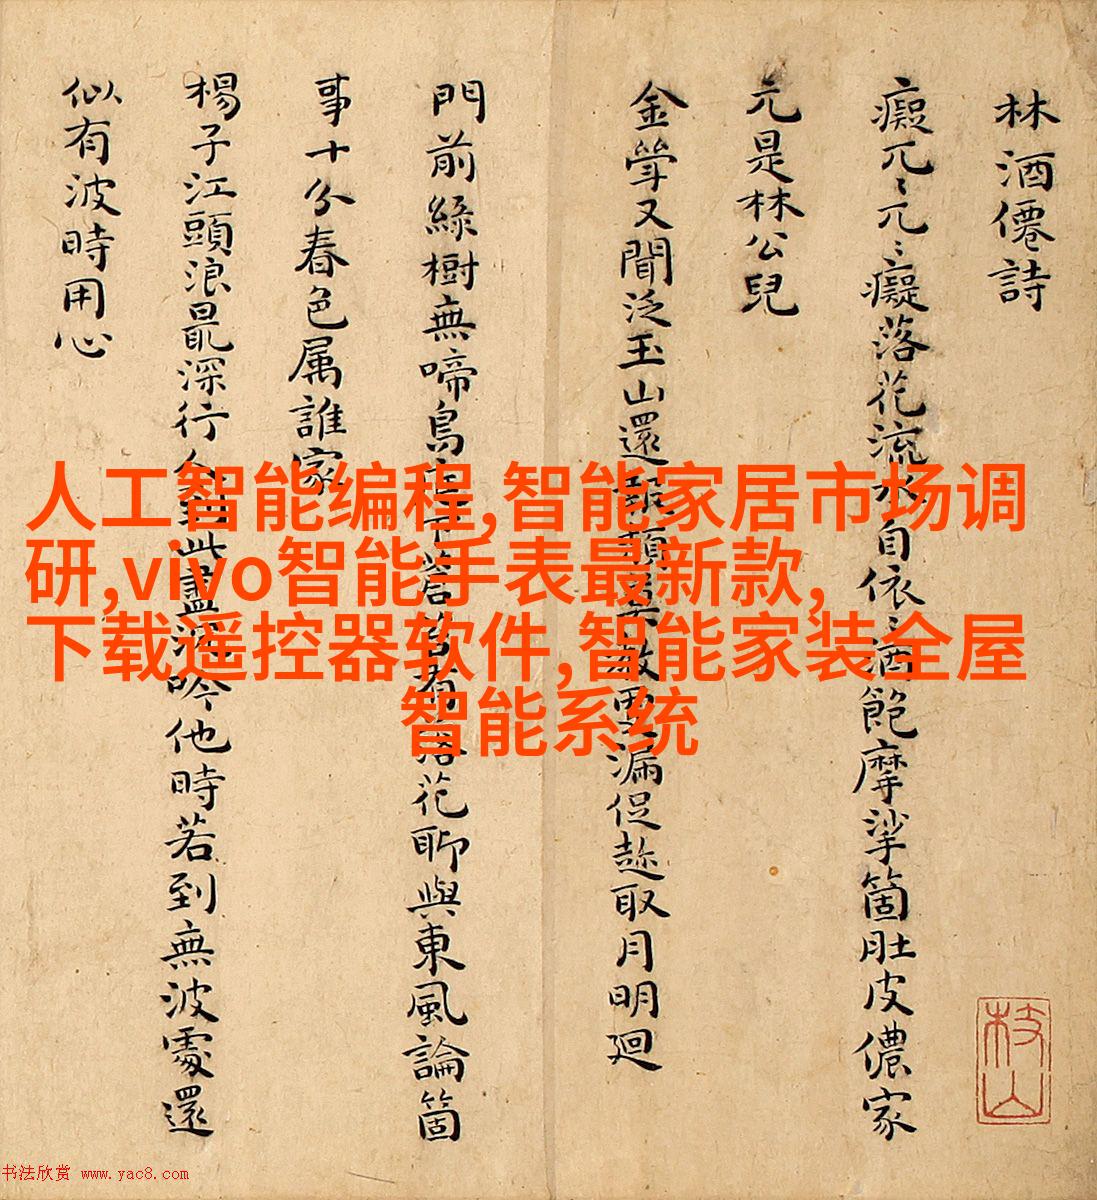 林酒僊詩
癡兀〻兀〻癡落花流水自依〻酒飽摩挲箇肚皮儂家
元是林公兒
金斝又聞泛玉山還報頹莫教更漏促趂取月明廻
門前綠樹無啼鳥庭下蒼苔有落花聊與東風論箇
事十分春色属誰家
楊子江頭浪最深行人到此盡沉吟他時若到無波處還
似有波時用心
枝山
人工智能编程,智能家居市场调
研,vivo智能手表最新款,
下载遥控器软件,智能家装全屋
智能系统
书法欣赏 www.yac8.com